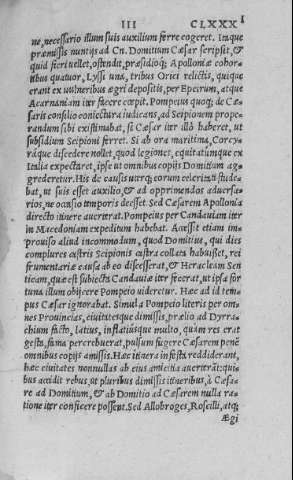 III CLXXXI
ne, necessario illum suis auxilium ferre cogeret. Itaque
præmissis nuntijs ad Cn. Domitium Cæsar scripsit, &
quid fieri vellet, ostendit, præsidioq; Apolloniæ cohor-
tibus quatuor, Lyssi una, tribus Orici relictis, quique
erant ex vulneribus ægri depositis, per Epeirum, atque
Acarnaniam iter facere cœpit. Pompeius quoq; de Cæ-
saris consilio coniectura iudicans, ad Scipionem prope-
randum sibi existimabat, si Cæsar iter illò haberet, ut
subsidium Scipioni ferret. Si ab ora maritima, Corcy-
ráque discedere nollet, quod legiones, equitatúmque ex
Italia expectaret, ipse ut omnibus copijs Domitium ag-
grederetur. His de causis uterq; eorum celeritati stude-
bat, ut suis esset auxilio, & ad opprimendos aduersa-
rios, ne occasio temporis deesset. Sed Cæsarem Apollonia
directo itinere auerterat. Pompeius per Candauiam iter
in Macedoniam expeditum habebat. Accessit etiam im-
prouiso aliud incommodum, quod Domitius, qui dies
complures castris Scipionis castra collata habuisset, rei
frumentariæ causa ab eo discesserat, & Heracleam Sen
ticam, quæ est subiecta Candauiæ iter fecerat, ut ipsa for
tuna illum obijcere Pompeio uideretur. Hæc ad id tem-
pus Cæsar ignorabat. Simul à Pompeio literis per om-
nes Prouincias, ciuitatesque dimissis, prælio ad Dyrra-
chium facto, latius, inflatiusque multo, quàm res erat
gesta, fama percrebuerat, pulsum fugere Cæsarem penè
omnibus copijs amissis. Hæc itinera infesta reddiderant,
hæc ciuitates nonnullas ab eius amicitia auertebãt: qui-
bus accidit rebus, ut pluribus dimissi itineribus, à Cæsa-
re ad Domitium, & ab Domitio ad Cæsarem nulla ra-
tione iter conficere possent. Sed Allobroges, Roscilli, atq;
Ægi